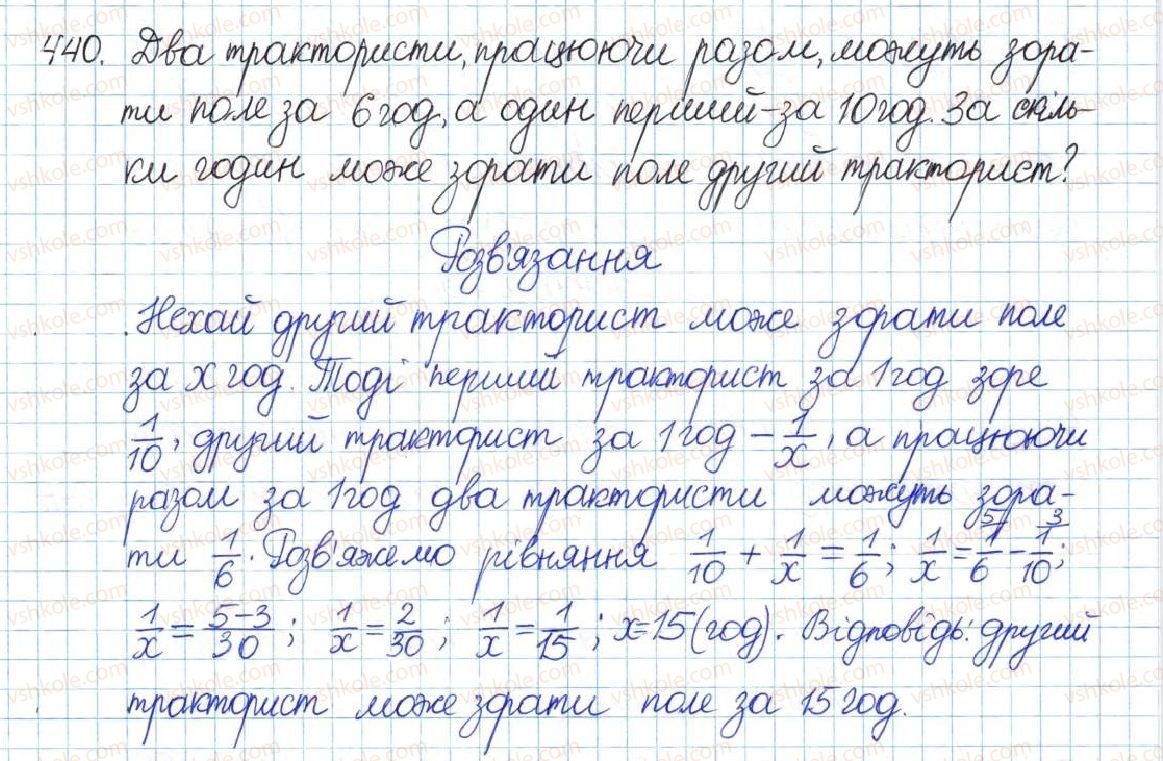 440. Два трактористи, працюючи разом, можуть зора-
ти поле за 6 год, а один перший - за 10 год. За скіль-
ки годин може зорати поле другий тракторист?
Розв'язання
Нехай другий тракторист може зорати поле
за x год. Тоді перший тракторист за 1 год зоре
1/10, другий тракторист за 1 год - 1/x, а працюючи
разом за 1 год два трактористи можуть зора-
ти 1/6. Розв'яжемо рівняння 1/10 + 1/x = 1/6; 1/x = 1/6 (5 - 1/10 (3;
1/x = 5-3/30; 1/x = 2/30; 1/x = 1/15; x=15 (год). Відповідь: другий
тракторист може зорати поле за 15 год.
vshkole.com